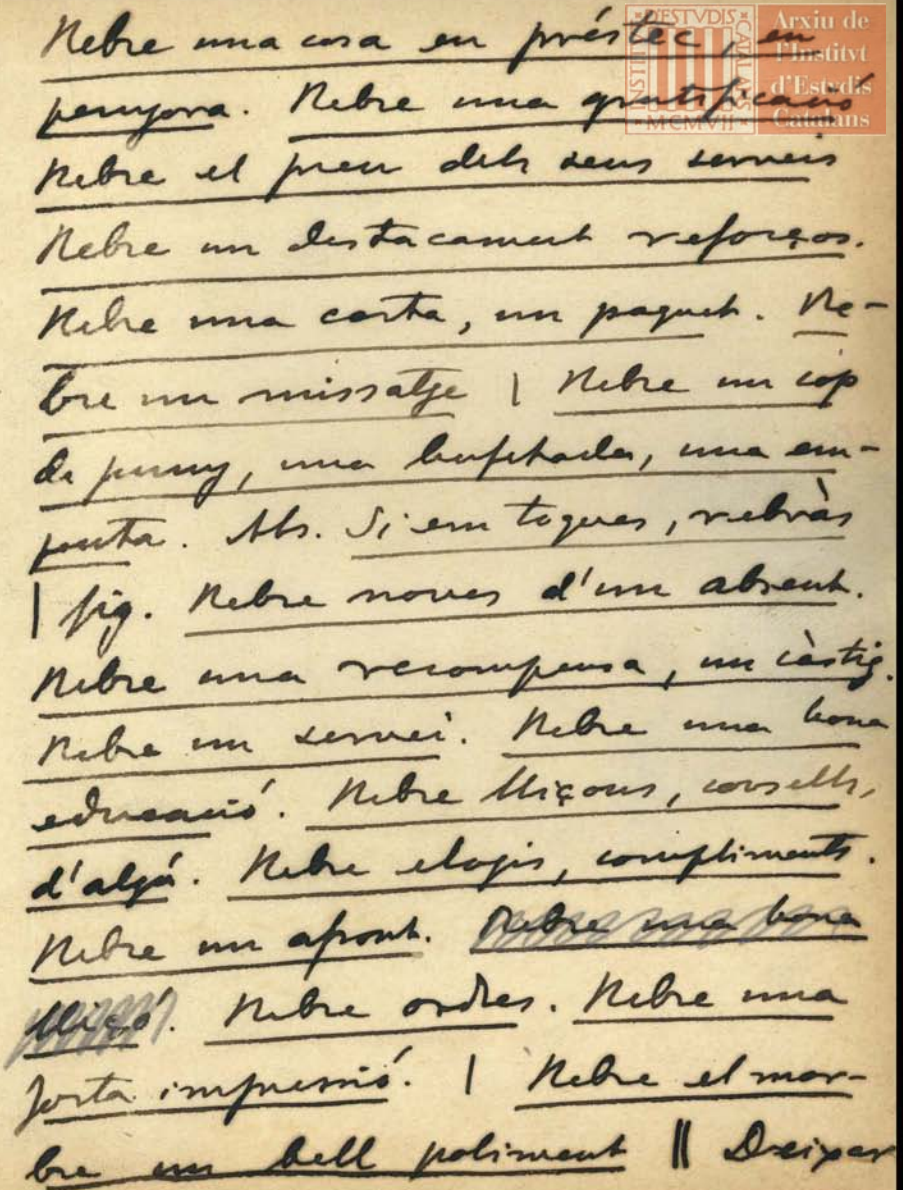 Rebre una cosa en préstec, en
penyora. Rebre una gratificació
Rebre el preu dels seus serveis
Rebre un destacament reforços.
Rebre una carta, un paquet. Re-
bre un missatge | Rebre un cop
de puny, una bufetada, una em-
penta. Abs. Si em toques, rebràs
| fig. Rebre noves d'un absent.
Rebre una recompensa, un càstig.
Rebre un servei. Rebre una bona
educació. Rebre lliçons, consells,
d'algú. Rebre elogis, compliments.
Rebre un afront. Rebre una bona
lliçó. Rebre ordres. Rebre una
forta impressió. | Rebre el mar-
bre un bell poliment || Deixar
INSTITVT D'ESTVDIS CATALANS
MCMVII
Arxiu de
l'Institvt
d'Estvdis
Catalans